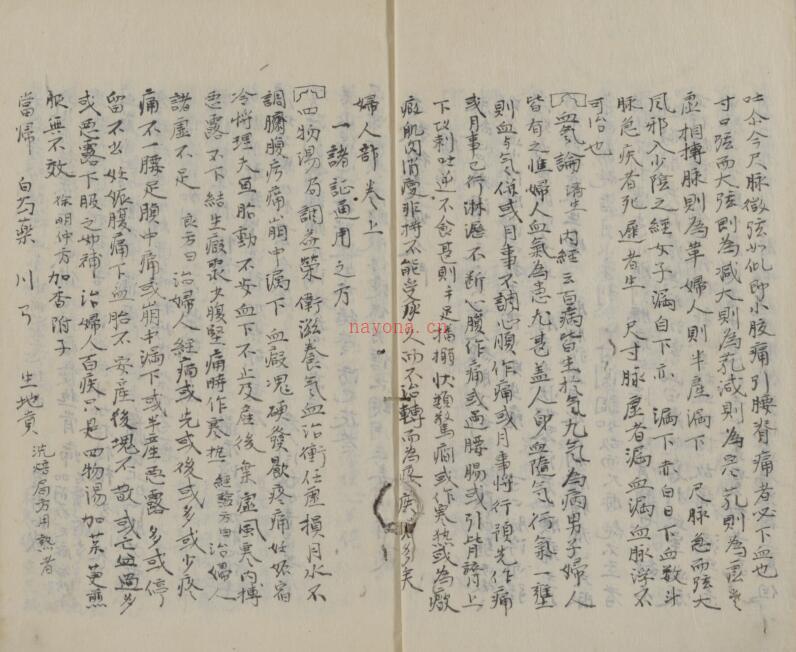 吐今尺脉微弦如此即小腹痛引腰脊痛者必下血也
寸口弦而大弦則為减大則為芤减則為芤則為虛
虛相搏脉則為革婦人則半産漏下 尺脉急而弦大
風邪入少陰之經女子漏白下赤 漏下赤白日下血数斗
脉急疾者死遲者生 尺寸脉虛者漏血漏血脉浮不
可治也
血氣論 濟生 内經云百病皆生於氣九氣為病男子婦人
皆有之惟婦人血氣為患尤甚盖人身血隨氣行氣一壅
則血与气併或月事不調心腹作痛或月事將行預先作痛
或月事已行淋瀝不断心腹作痛或連腰脇或引背膂上
下攻刺吐逆不食甚則手足搐搦状類驚癎或作寒热或為癥
瘕肌肉消瘦非特不能受孕人而不治轉而為疾者多矣
婦人部卷上
一諸証通用之方
四物湯 局 調益榮衛滋養氣血治衝任虛損月水不
調臍腹㽲痛崩中漏下血瘕塊硬發歇疼痛妊娠宿
冷將理失宜胎動不安血下不止及産後棄虛風寒内搏
惡露不下結生瘕聚少腹堅痛時作寒热 經驗方曰治婦人
諸虛不足 良方曰治婦人經病或先或後或多或少疼
痛不一腰足腹中痛或崩中漏下或半産惡露多或停
留不出妊娠腹痛下血胎不安産後塊不散或亡血過多
或惡露下服之如補治婦人百疾只是四物湯加茱萸煎
服無不效 徐明仲方加香附子
當㱕 白芍藥 川弓 生地黄 洗焙局方用熟者
nayona.cn